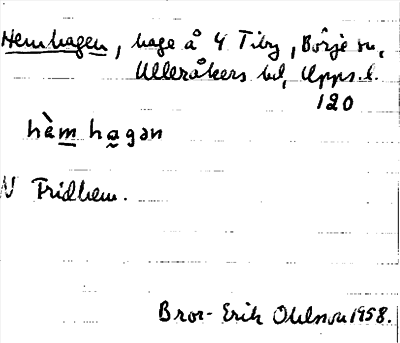 Hemhagen, hage å 4 Tiby, Börje sn,
Ulleråkers hd, Upps. l.
120
hàm hagən
N Fridhem.
Bror-Erik Ohlsson 1958.